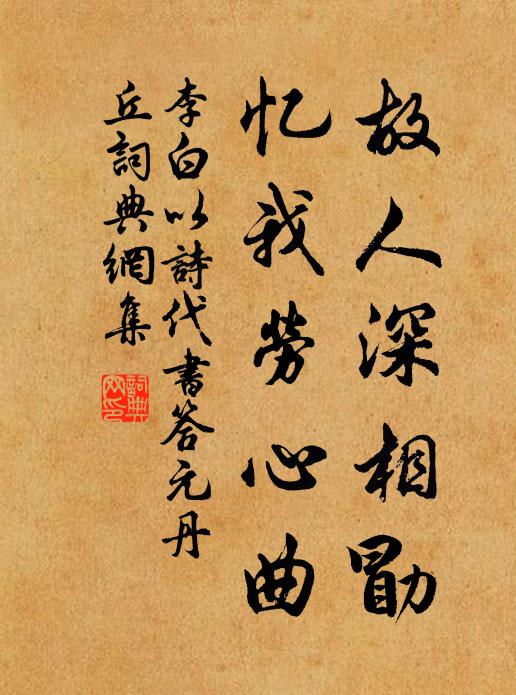 故人深相勖
忆我勞心曲
李白以詩代書答元丹
丘詞典網集
詞典
网印